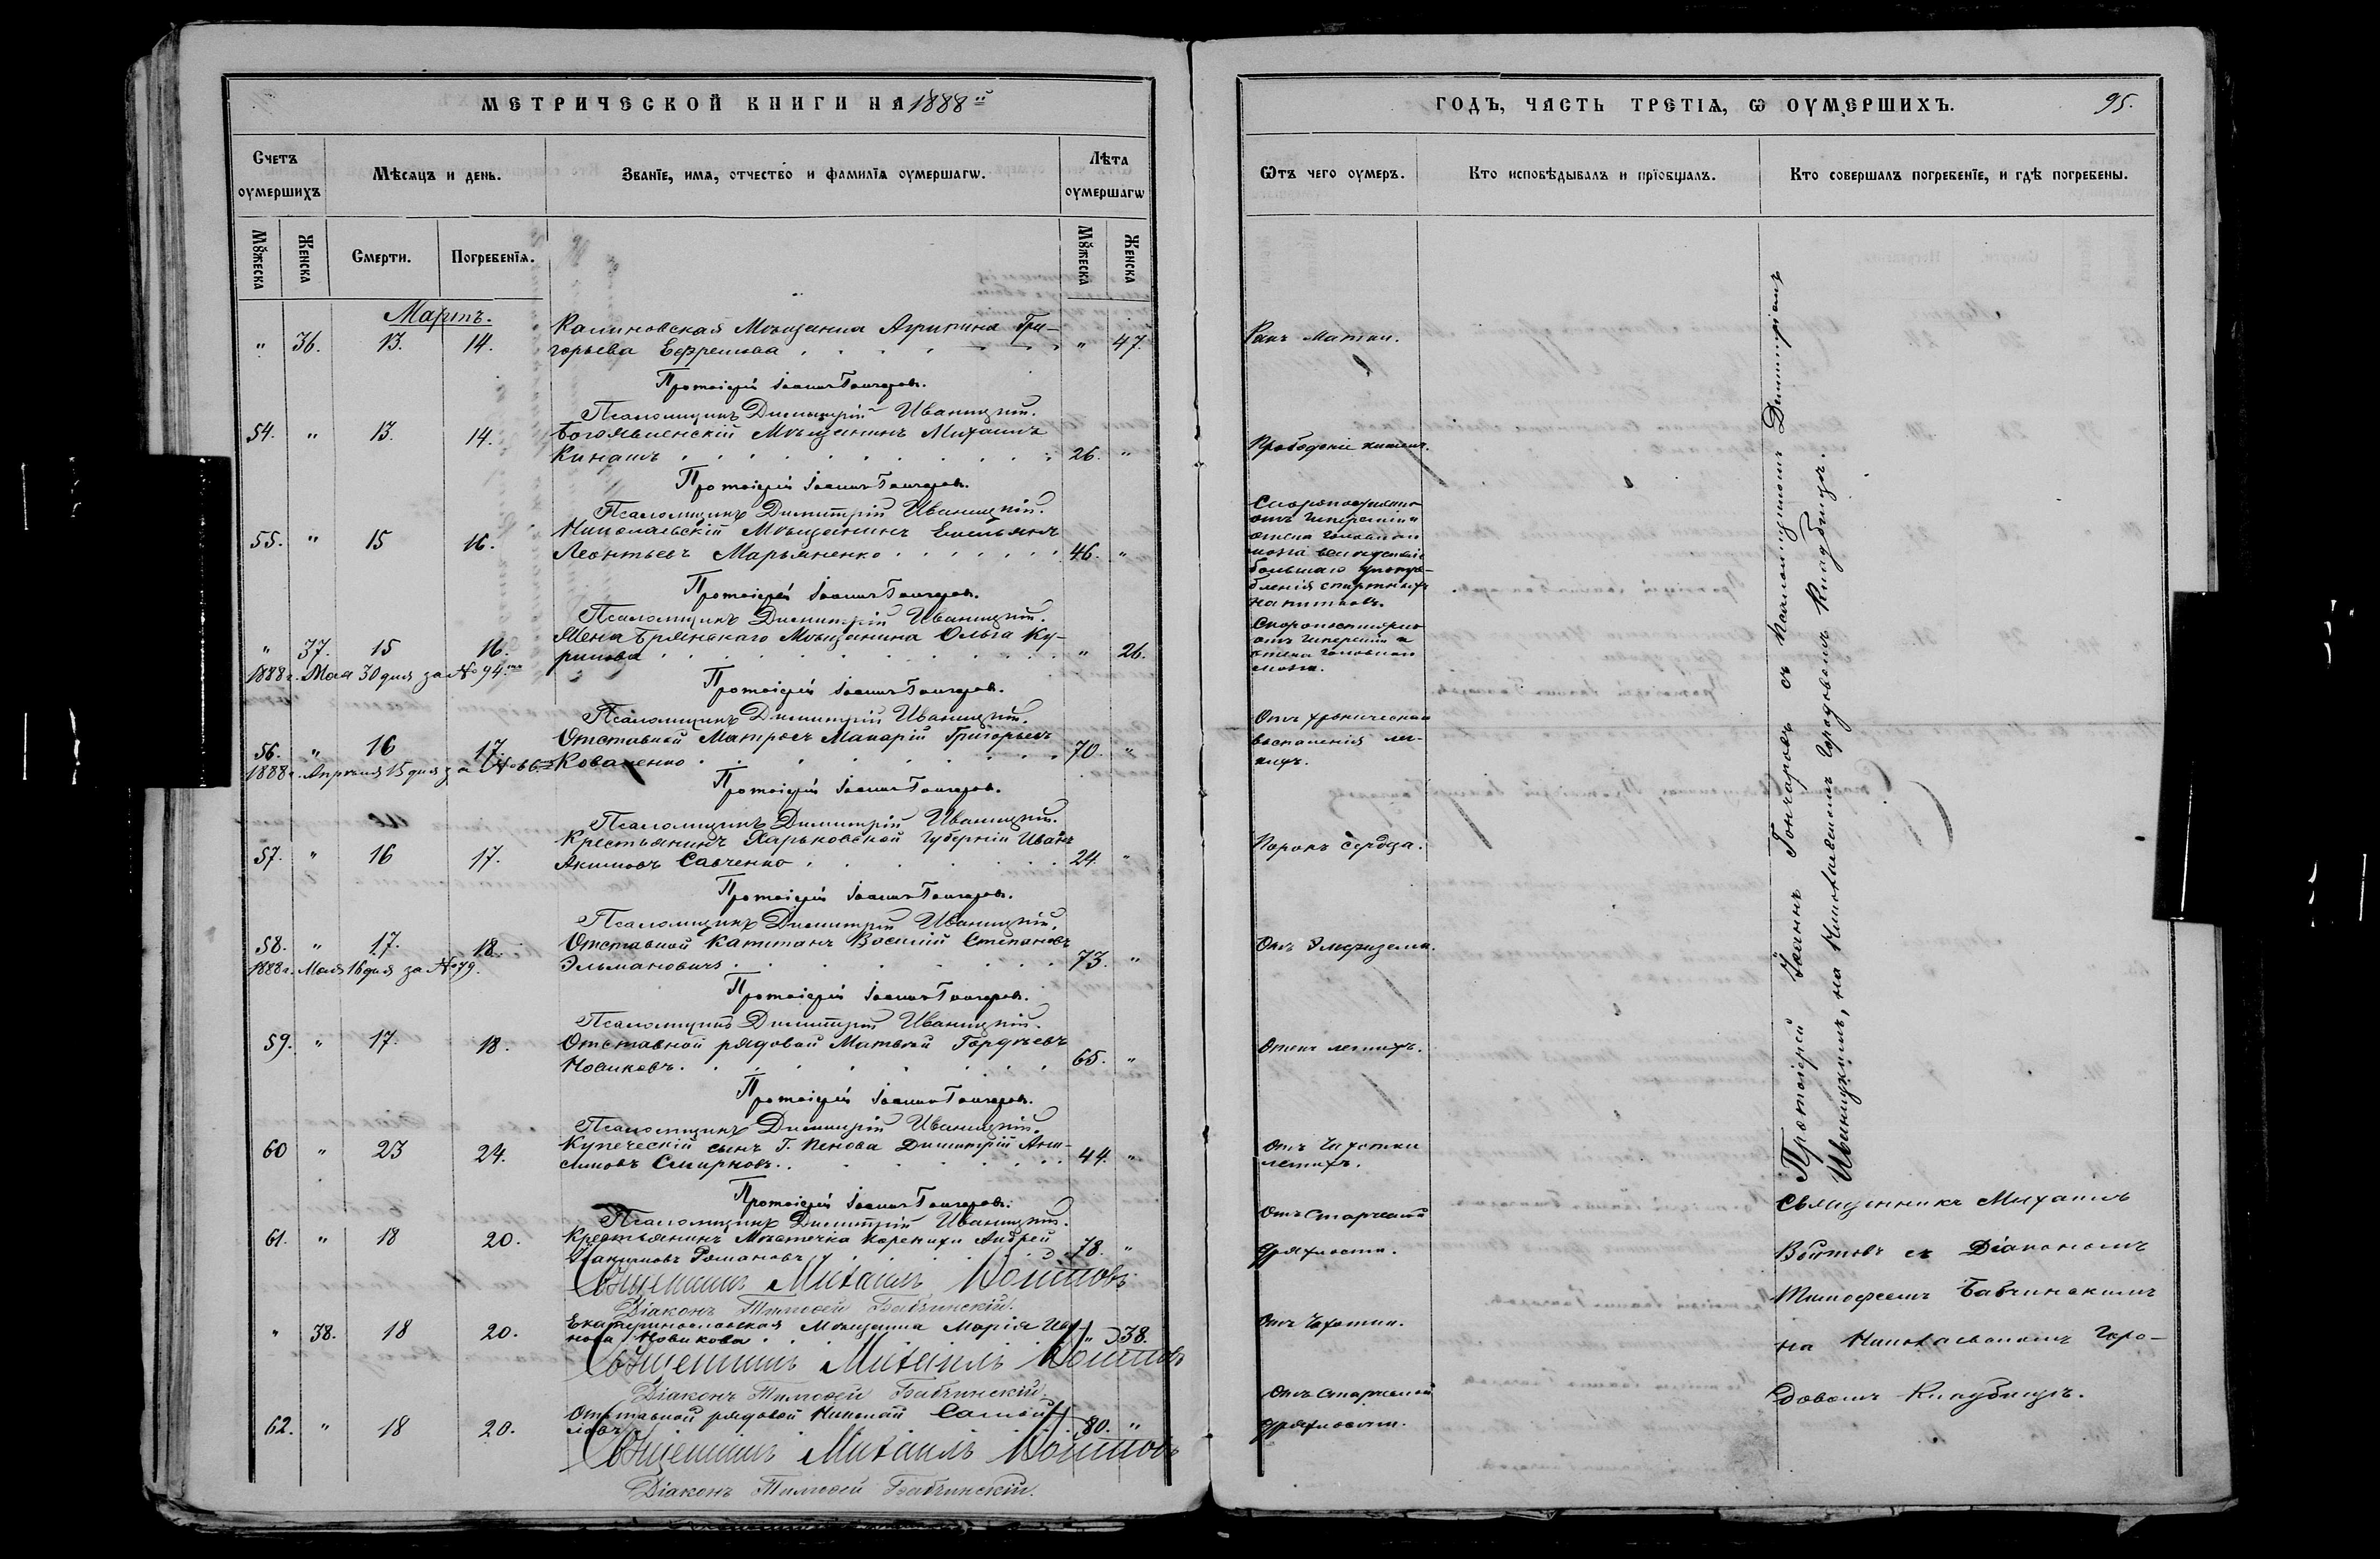 МЕТРИЧЕСКОЙ КНИГИ НА 1888й
Счетъ оумершихъ
Мѣсяцъ и день.
Званїе, имя, отчество и фамилїя оумершагѡ.
Лѣта оумершагѡ
Мꙋжеска
Женска
Смерти.
Погребенїя.
Мꙋжеска
Женска
Мартъ.
" 36. 13. 14. Калиновская Мѣщанка Агрипина Гри-
горьева Ефремова " 47.
Протоіерей Іоаннъ Гончаровъ.
Псаломщикъ Димитрій Иваницкій.
54. " 13. 14. Богоявленскій Мѣщанинъ Михаилъ
26. "
Протоіерей Іоаннъ Гончаровъ.
Псаломщикъ Димитрій Иваницкій.
55. " 15 16. Николаевскій Мѣщанинъ Емельянъ
Леонтьевъ Марьяненко 46. "
Протоіерей Іоаннъ Гончаровъ.
Псаломщикъ Димитрій Иваницкій.
" 37. 15 16. Жена Брянскаго Мѣщанина Ольга Ку-
" 26.
1888 г. Мая 30 дня за № 94.
Протоіерей Іоаннъ Гончаровъ.
Псаломщикъ Димитрій Иваницкій.
56. " 16 17. Отставной Матросъ Макарій Григорьевъ
Коваленко 70. "
1888 г. Апрѣля 15 дня за № 66
Протоіерей Іоаннъ Гончаровъ.
Псаломщикъ Димитрій Иваницкій.
57. " 16 17. Крестьянинъ Харьковской Губерніи Иванъ
Акимовъ Савченко 24. "
Протоіерей Іоаннъ Гончаровъ.
Псаломщикъ Димитрій Иваницкій.
58. " 17. 18. Отставной Капитанъ Василій Степановъ
Эльмановичъ 73. "
1888 г. Мая 16 дня за № 79.
Протоіерей Іоаннъ Гончаровъ.
Псаломщикъ Димитрій Иваницкій.
59. " 17. 18. Отставной рядовой Матвѣй Гордѣевъ
Новиковъ. 65. "
Протоіерей Іоаннъ Гончаровъ.
Псаломщикъ Димитрій Иваницкій.
60 " 23 24. Купеческій сынъ Г. Димитрій
Смирновъ. 44. "
Протоіерей Іоаннъ Гончаровъ.
Псаломщикъ Димитрій Иваницкій.
61. " 18 20. Крестьянинъ Мѣстечка Андрей
Романовъ 78. "
Священникъ Михаилъ Войтовъ
Діаконъ Тимофей Бабчинскій.
" 38. 18 20. Екатеринославская Мѣщанка Марія Ива-
нова Новикова " 38.
Священникъ Михаилъ Войтовъ
Діаконъ Тимофей Бабчинскій.
62. " 18 20. Отставной рядовой Николай Самой-
ловъ 80. "
Священникъ Михаилъ Войтовъ
Діаконъ Тимофей Бабчинскій.
ГОДЪ, ЧАСТЬ ТРЕТІѦ, Ѡ ОУМЕРШИХЪ. 95.
Ѿтъ чего оумеръ.
Кто исповѣдывалъ и прїобщалъ.
Кто совершалъ погребенїе, и гдѣ погребены.
Ракъ Матки.
Прободеніе
Скоропостижно
отъ гипереміи и
отека головнаго
мозга вслѣдствіе
большаго употре-
бленія спиртныхъ
напитковъ.
Скоропостижно
отъ гипереміи и
отека головнаго
мозга.
Отъ хроническаго
воспаленія лег-
кихъ.
Порокъ Сердца.
Отъ Эмфиземы.
Отекъ легкихъ.
Отъ Чахотки
легкихъ.
Отъ Старческой
дряхлости.
Отъ Чахотки.
Отъ Старческой
дряхлости.
Протоіерей Іоаннъ Гончаровъ съ Псаломщикомъ Димитріемъ
Иваницкимъ, на Николаевскомъ Городовомъ Кладбищѣ.
Священникъ Михаилъ
Войтовъ съ Діакономъ
Тимофеемъ Бабчинскимъ
на Николаевскомъ Горо-
довомъ Кладбищѣ.